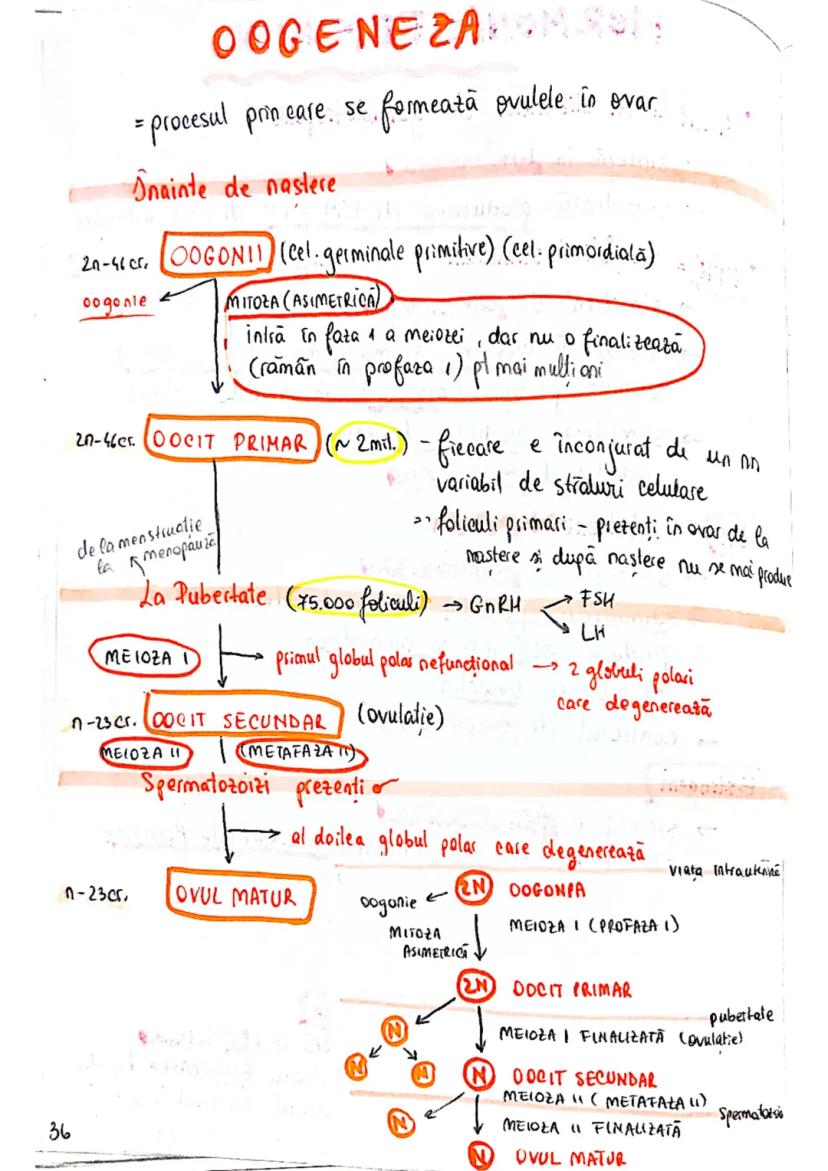 OOGENEZA
= procesul prin care se formează ovulele în ovar
Înainte de naștere
2n-46cr. OOGONII (cel. germinale primitive) (cel. primordială)
oogonie
MITOZA (ASIMETRICĂ)
intră în faza 1 a meiozei, dar nu o finalizează
(rămân în profaza 1) pt mai mulți ani
2n-46cr. OOCIT PRIMAR (~ 2mil.) - fiecare e înconjurat de un nn
variabil de straturi celulare
=> foliculi primari - prezenți în ovar de la
naștere și după naștere nu se mai produc
de la menstruație
la menopauză
La Pubertate (75.000 foliculi) → GnRH → FSH
→ LH
MEIOZA I → primul globul polar nefuncțional → 2 globuli polari
care degenerează
n-23cr. OOCIT SECUNDAR (ovulație)
MEIOZA II (METAFAZA II)
Spermatozoizi prezenți
→ al doilea globul polar care degenerează
n-23cr. OVUL MATUR
viața intrauterină
oogonie ← 2N OOGONIA
MITOZA
ASIMETRICĂ
MEIOZA I (PROFAZA I)
2N OOCIT PRIMAR
pubertate
N MEIOZA I FINALIZATĂ (ovulație)
N N N OOCIT SECUNDAR
MEIOZA II (METAFAZA II)
N MEIOZA II FINALIZATĂ
N OVUL MATUR
36